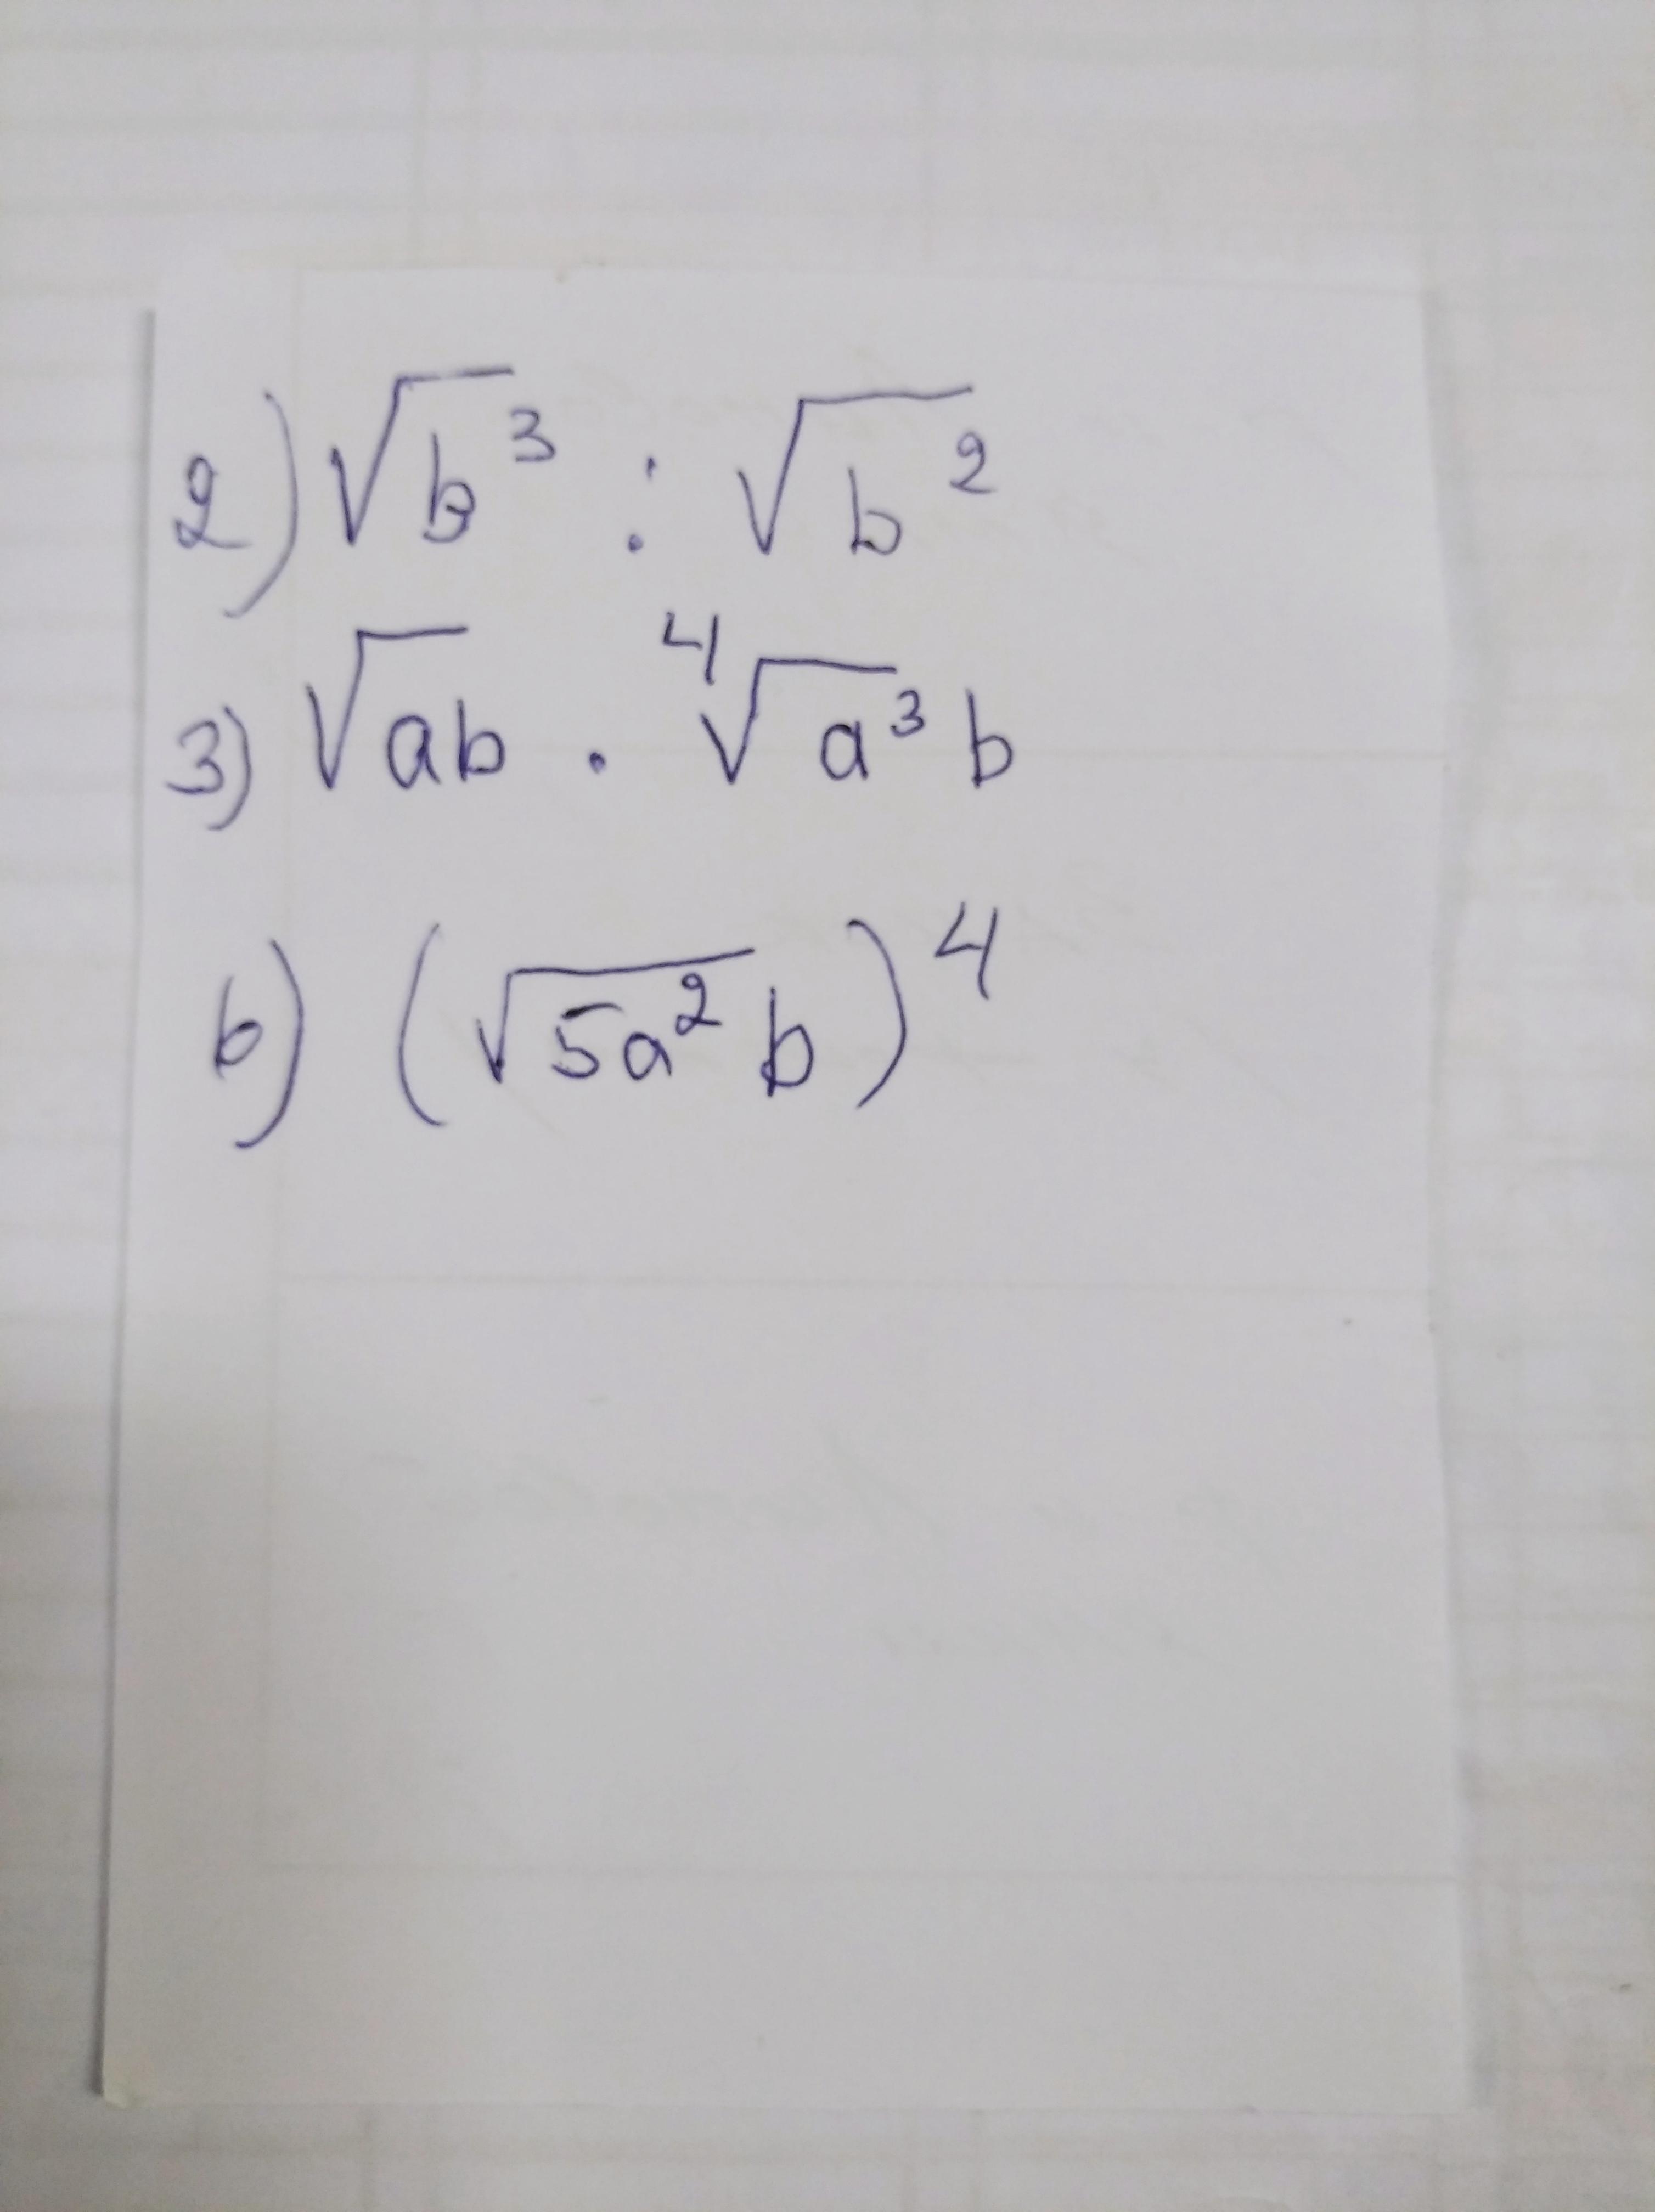 2) √b³ : √b²
3) √ab · ⁴√a³b
b) (√5a²b)⁴